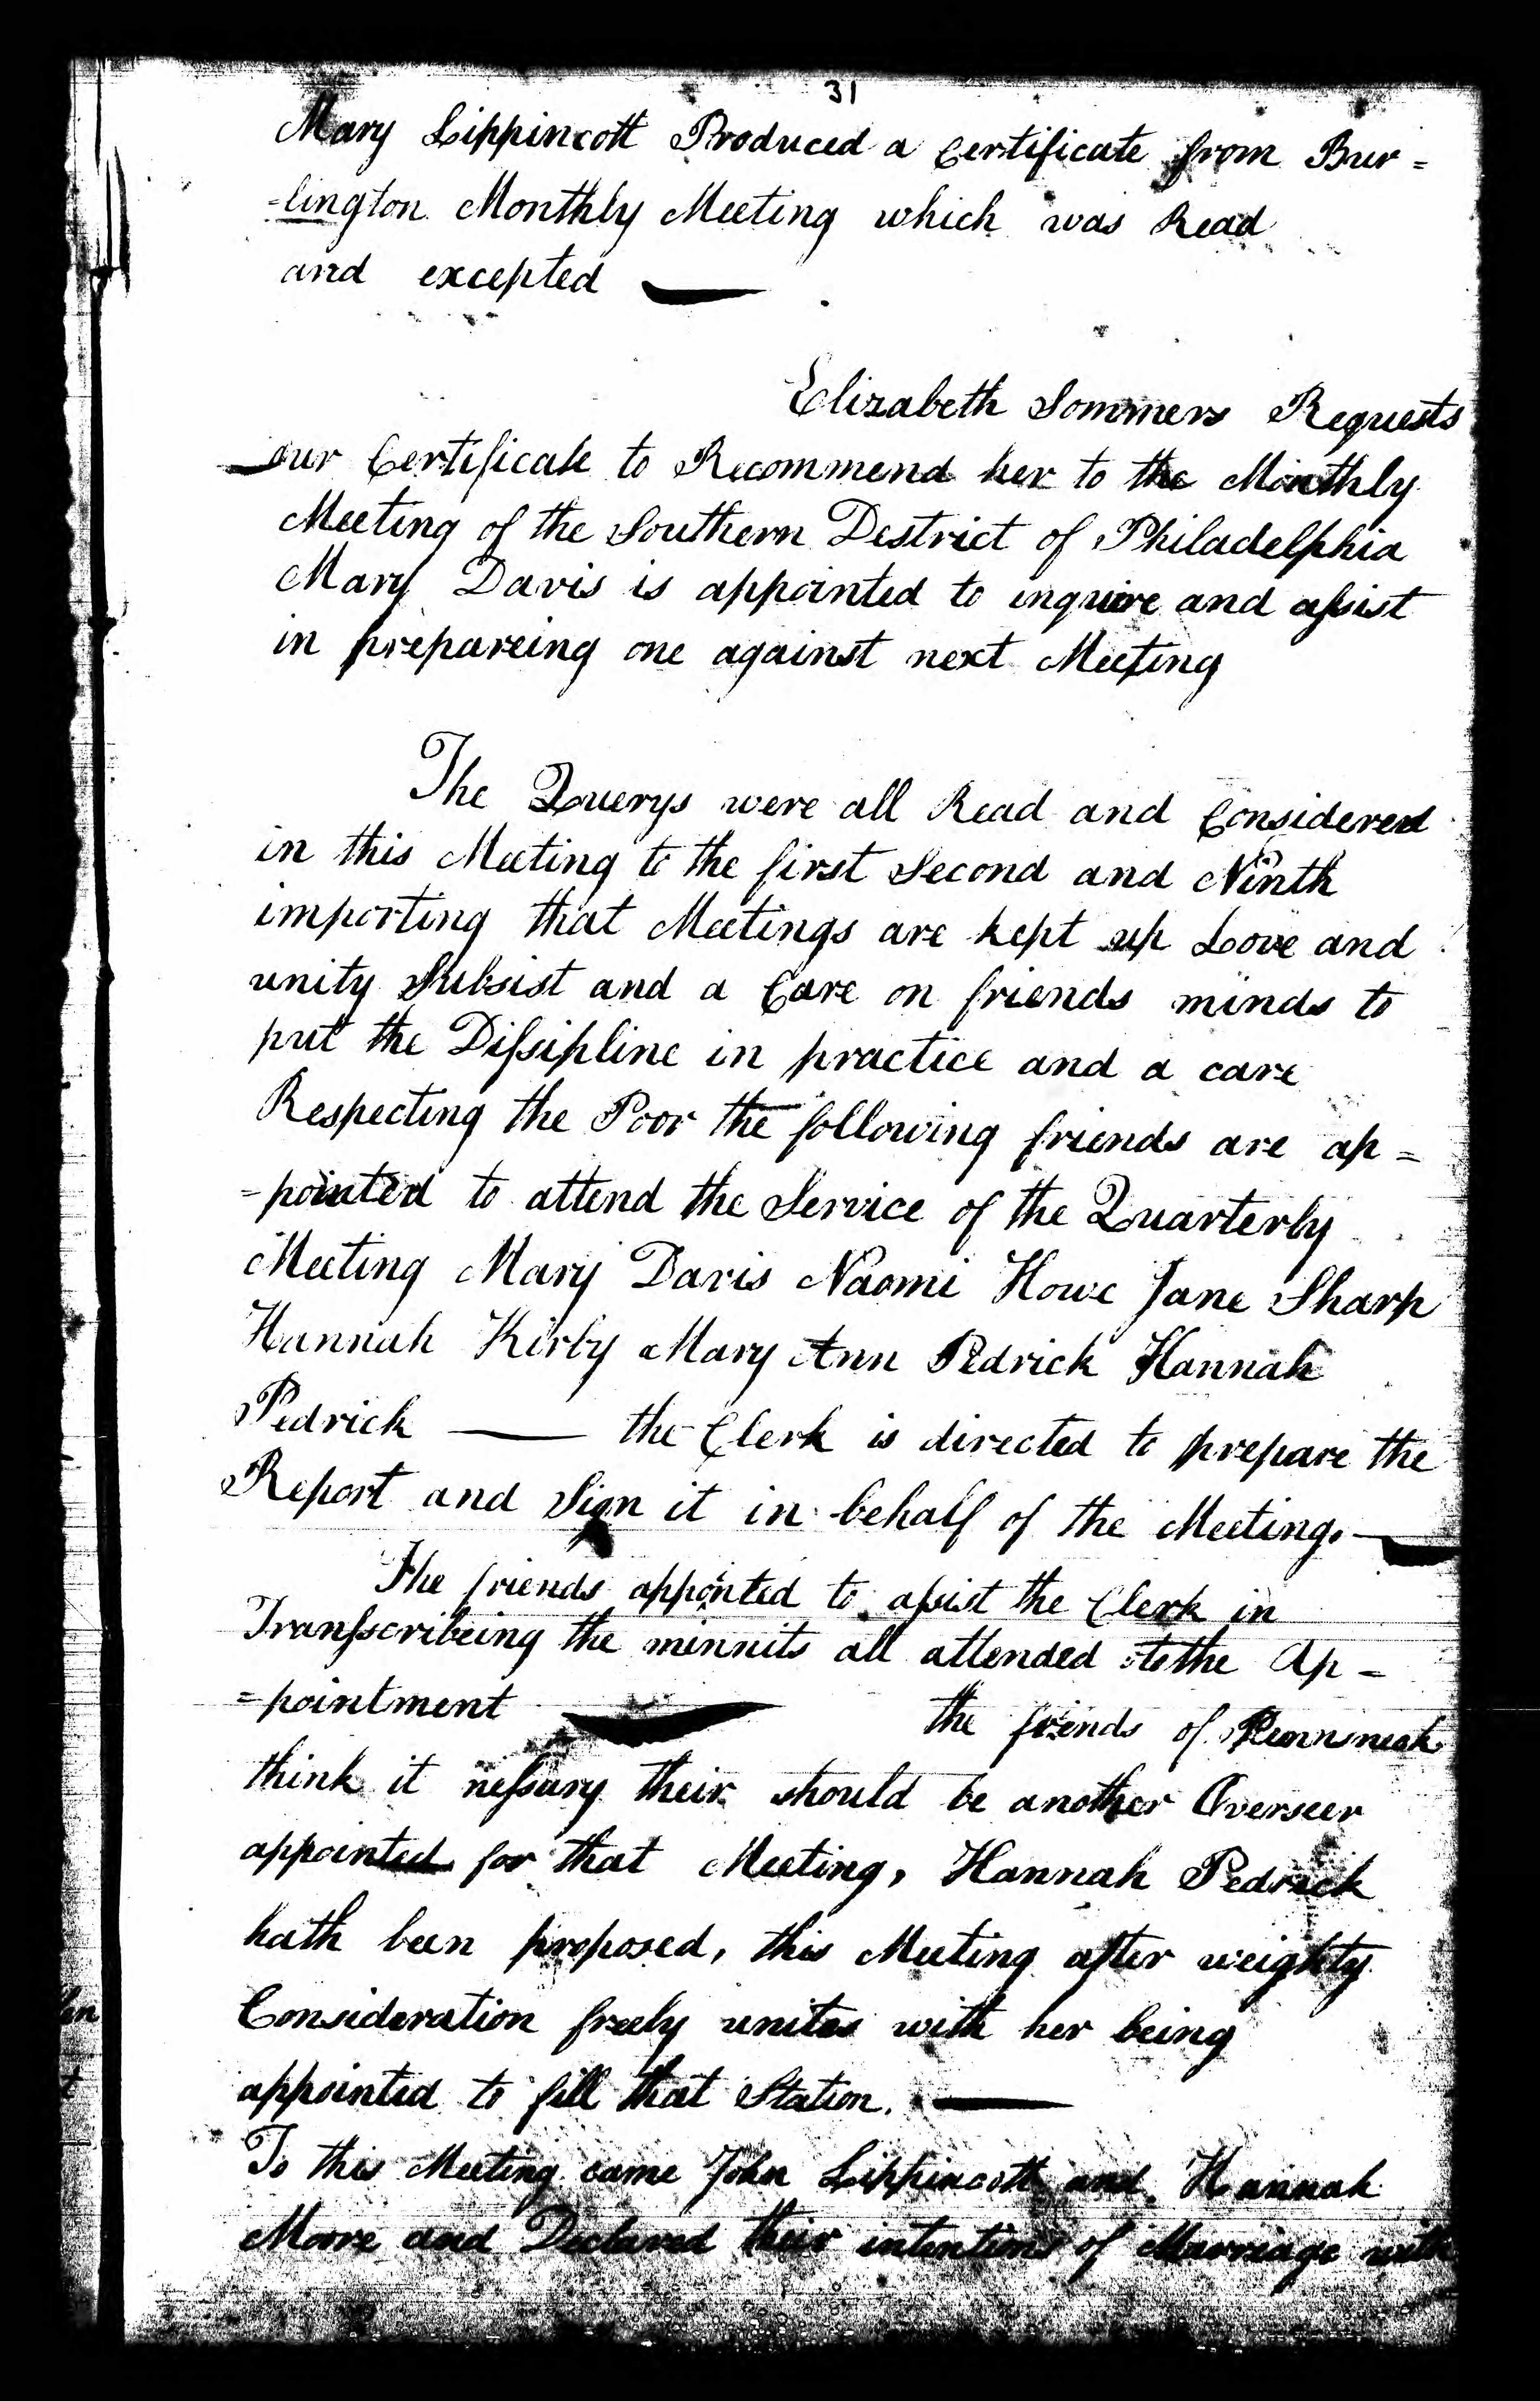 31
Mary Lippincott Produced a Certificate from Bur=
-lington Monthly Meeting which was Read
and excepted
Elizabeth Sommers Requests
our Certificate to Recommend her to the Monthly
Meeting of the Southern Destrict of Philadelphia
Mary Davis is appointed to inquire and assist
in prepareing one against next Meeting
The Querys were all Read and Considered
in this Meeting to the first Second and Ninth
importing that Meetings are kept up Love and
unity Subsist and a Care on friends minds to
put the Dissipline in practice and a care
Respecting the Poor the following friends are ap=
=pointed to attend the Service of the Quarterly
Meeting Mary Davis Naomi Howe Jane Sharp
Hannah Kirby Mary Ann Pedrick Hannah
Pedrick — the Clerk is directed to prepare the
Report and Sign it in behalf of the Meeting.
The friends appointed to assist the Clerk in
Transscribeing the minnits all attended to the Ap=
=pointment the friends of
think it nessary their should be another Overseer
appointed for that Meeting, Hannah Pedrick
hath been proposed, this Meeting after weighty
Consideration freely unites with her being
appointed to fill that Station.
To this Meeting came John Lippincott and Hannah
Moore and Declared their intentions of Marriage with